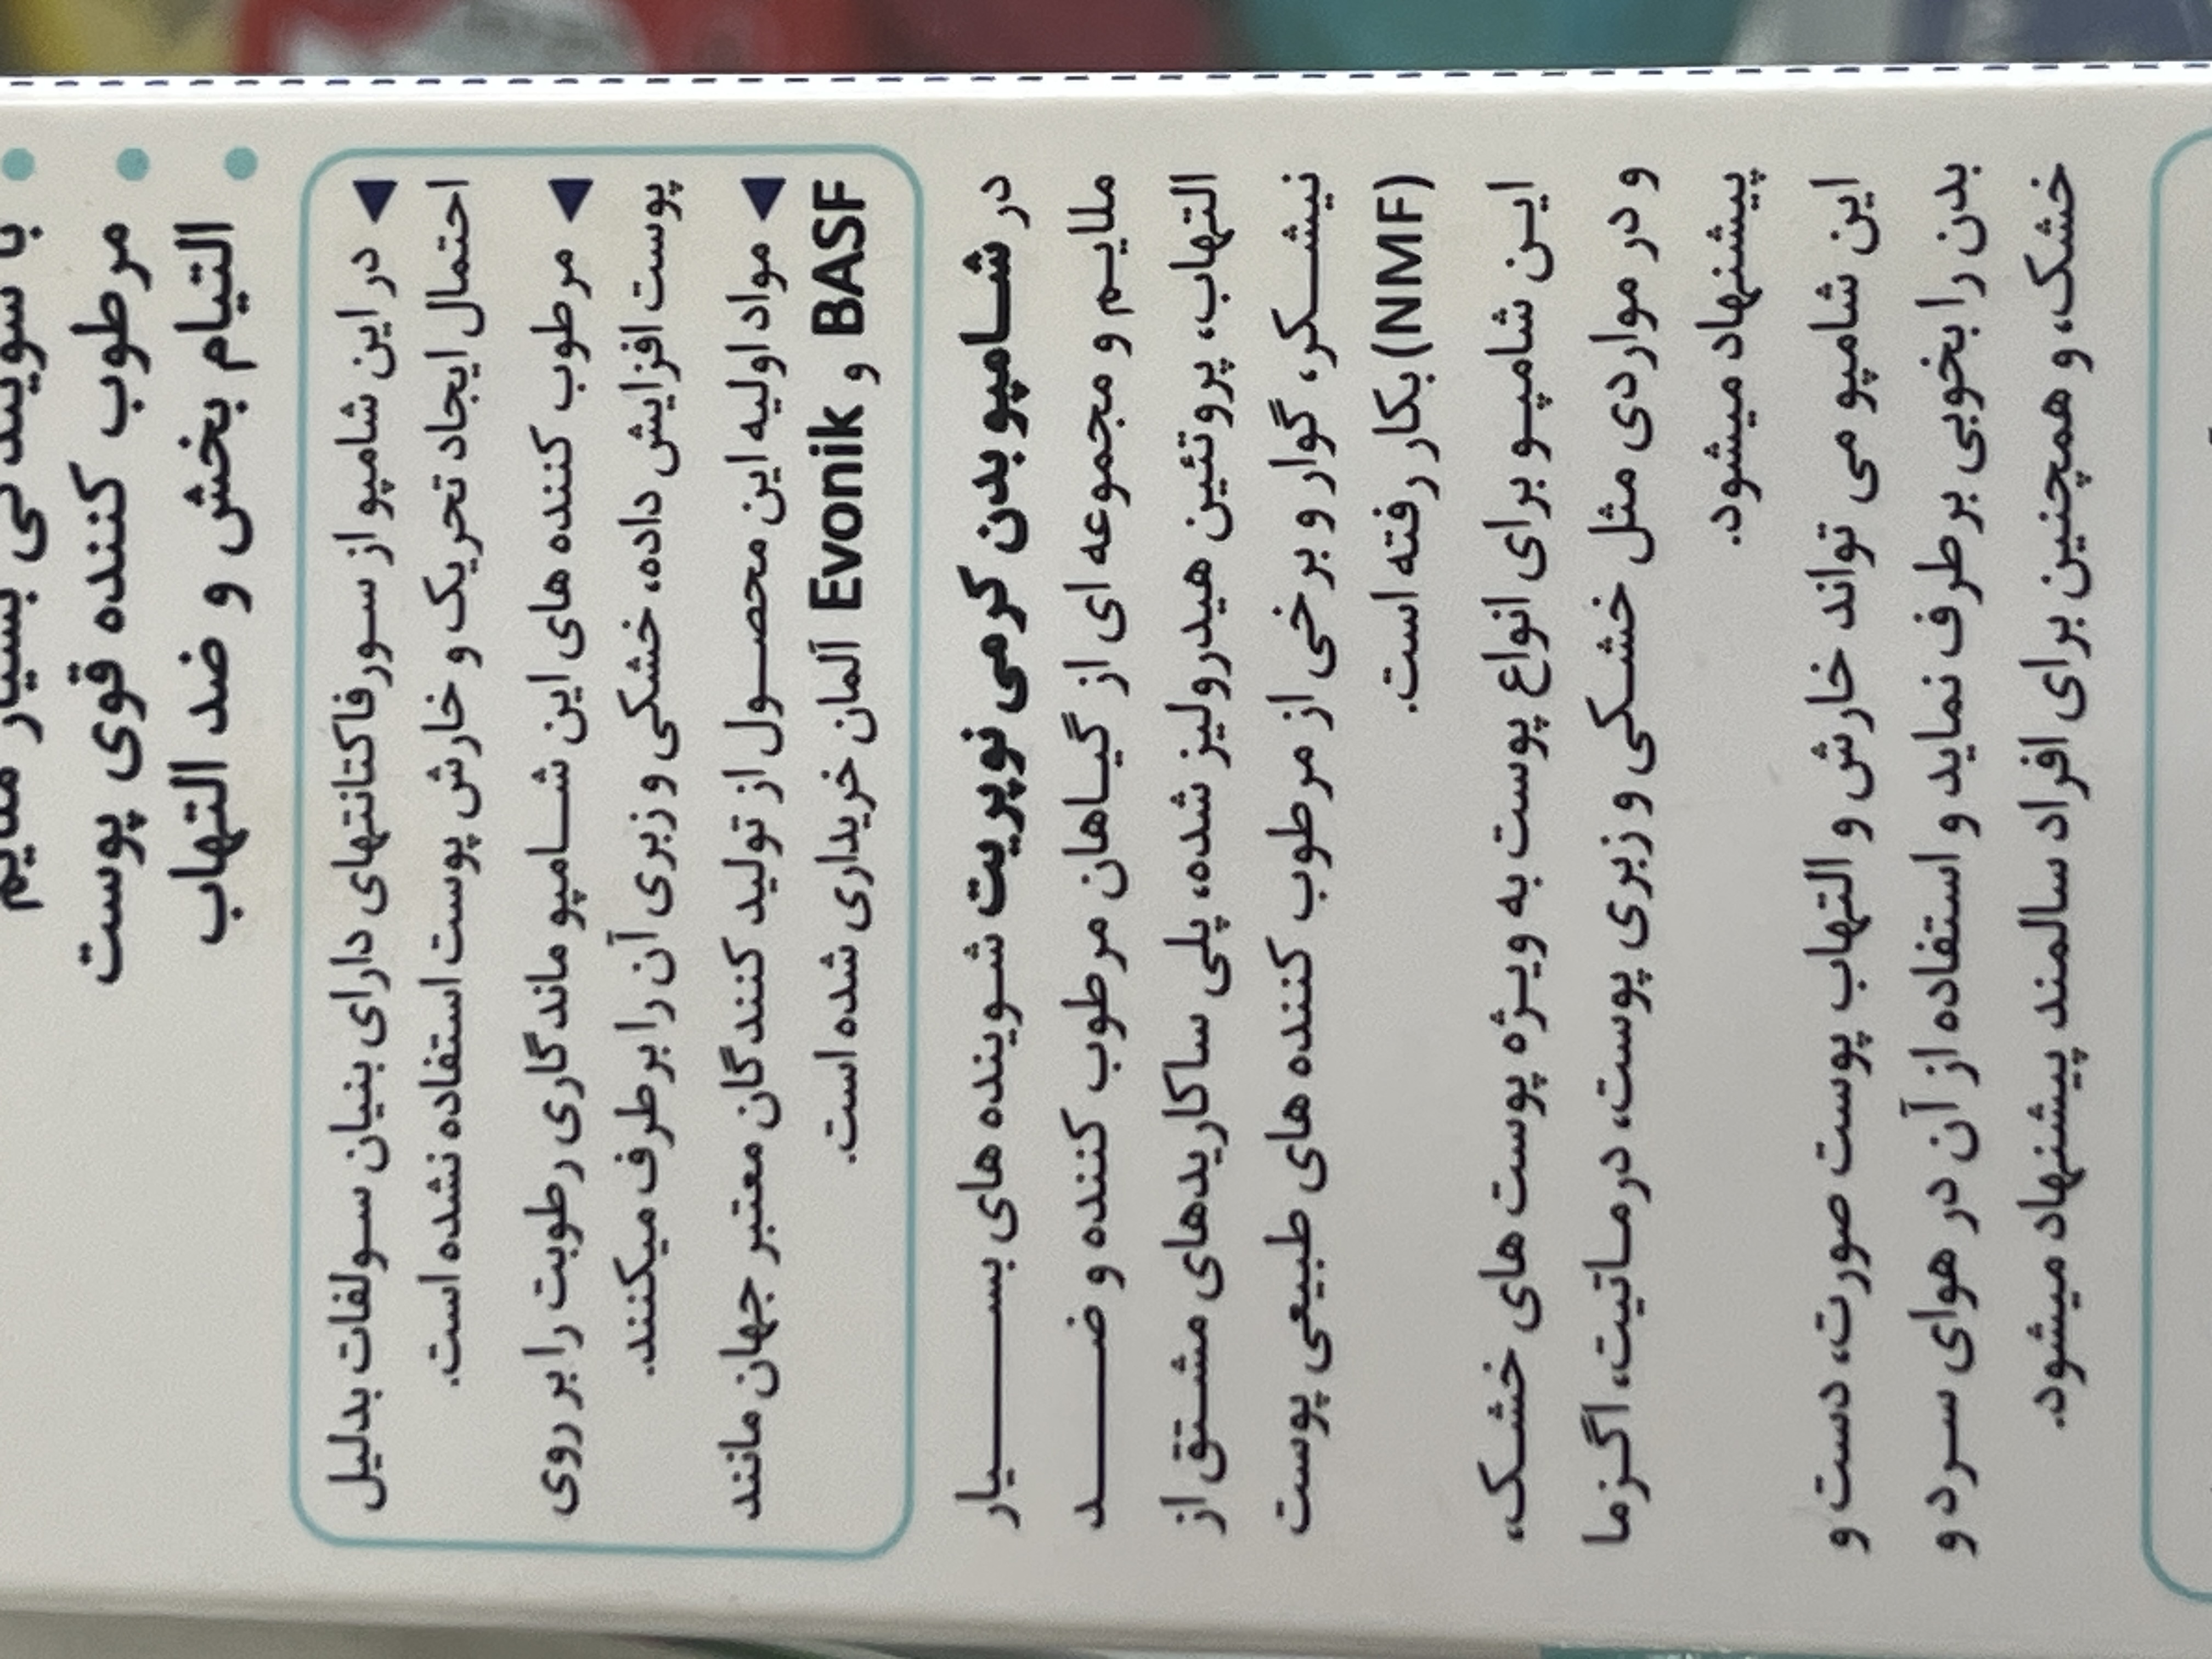 با سویندگی بسیار ملایم
مرطوب کننده قوی پوست
التیام بخش و ضد التهاب
در این شامپو از سورفاکتانتهای دارای بنیان سولفات بدلیل
احتمال ایجاد تحریک و خارش پوست استفاده نشده است.
مرطوب کننده های این شامپو ماندگاری رطوبت را بر روی
پوست افزایش داده، خشکی و زبری آن را برطرف میکنند.
مواد اولیه این محصول از تولید کنندگان معتبر جهان مانند
BASF و Evonik آلمان خریداری شده است.
در شامپو بدن کرمی نوپریت شوینده های بسیار
ملایم و مجموعه ای از گیاهان مرطوب کننده و ضد
التهاب، پروتئین هیدرولیز شده، پلی ساکاریدهای مشتق از
نیشکر، گوار و برخی از مرطوب کننده های طبیعی پوست
(NMF) بکار رفته است.
این شامپو برای انواع پوست به ویژه پوست های خشک،
و در مواردی مثل خشکی و زبری پوست، درماتیت، اگزما
پیشنهاد میشود.
این شامپو می تواند خارش و التهاب پوست صورت، دست و
بدن را بخوبی برطرف نماید و استفاده از آن در هوای سرد و
خشک، و همچنین برای افراد سالمند پیشنهاد میشود.